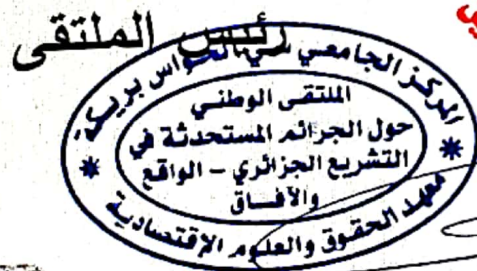 رئيس الملتقى
المركز الجامعي سي الحواس بريكة
الملتقى الوطني
حول الجرائم المستحدثة في
التشريع الجزائري – الواقع
والآفاق
معهد الحقوق والعلوم الإقتصادية